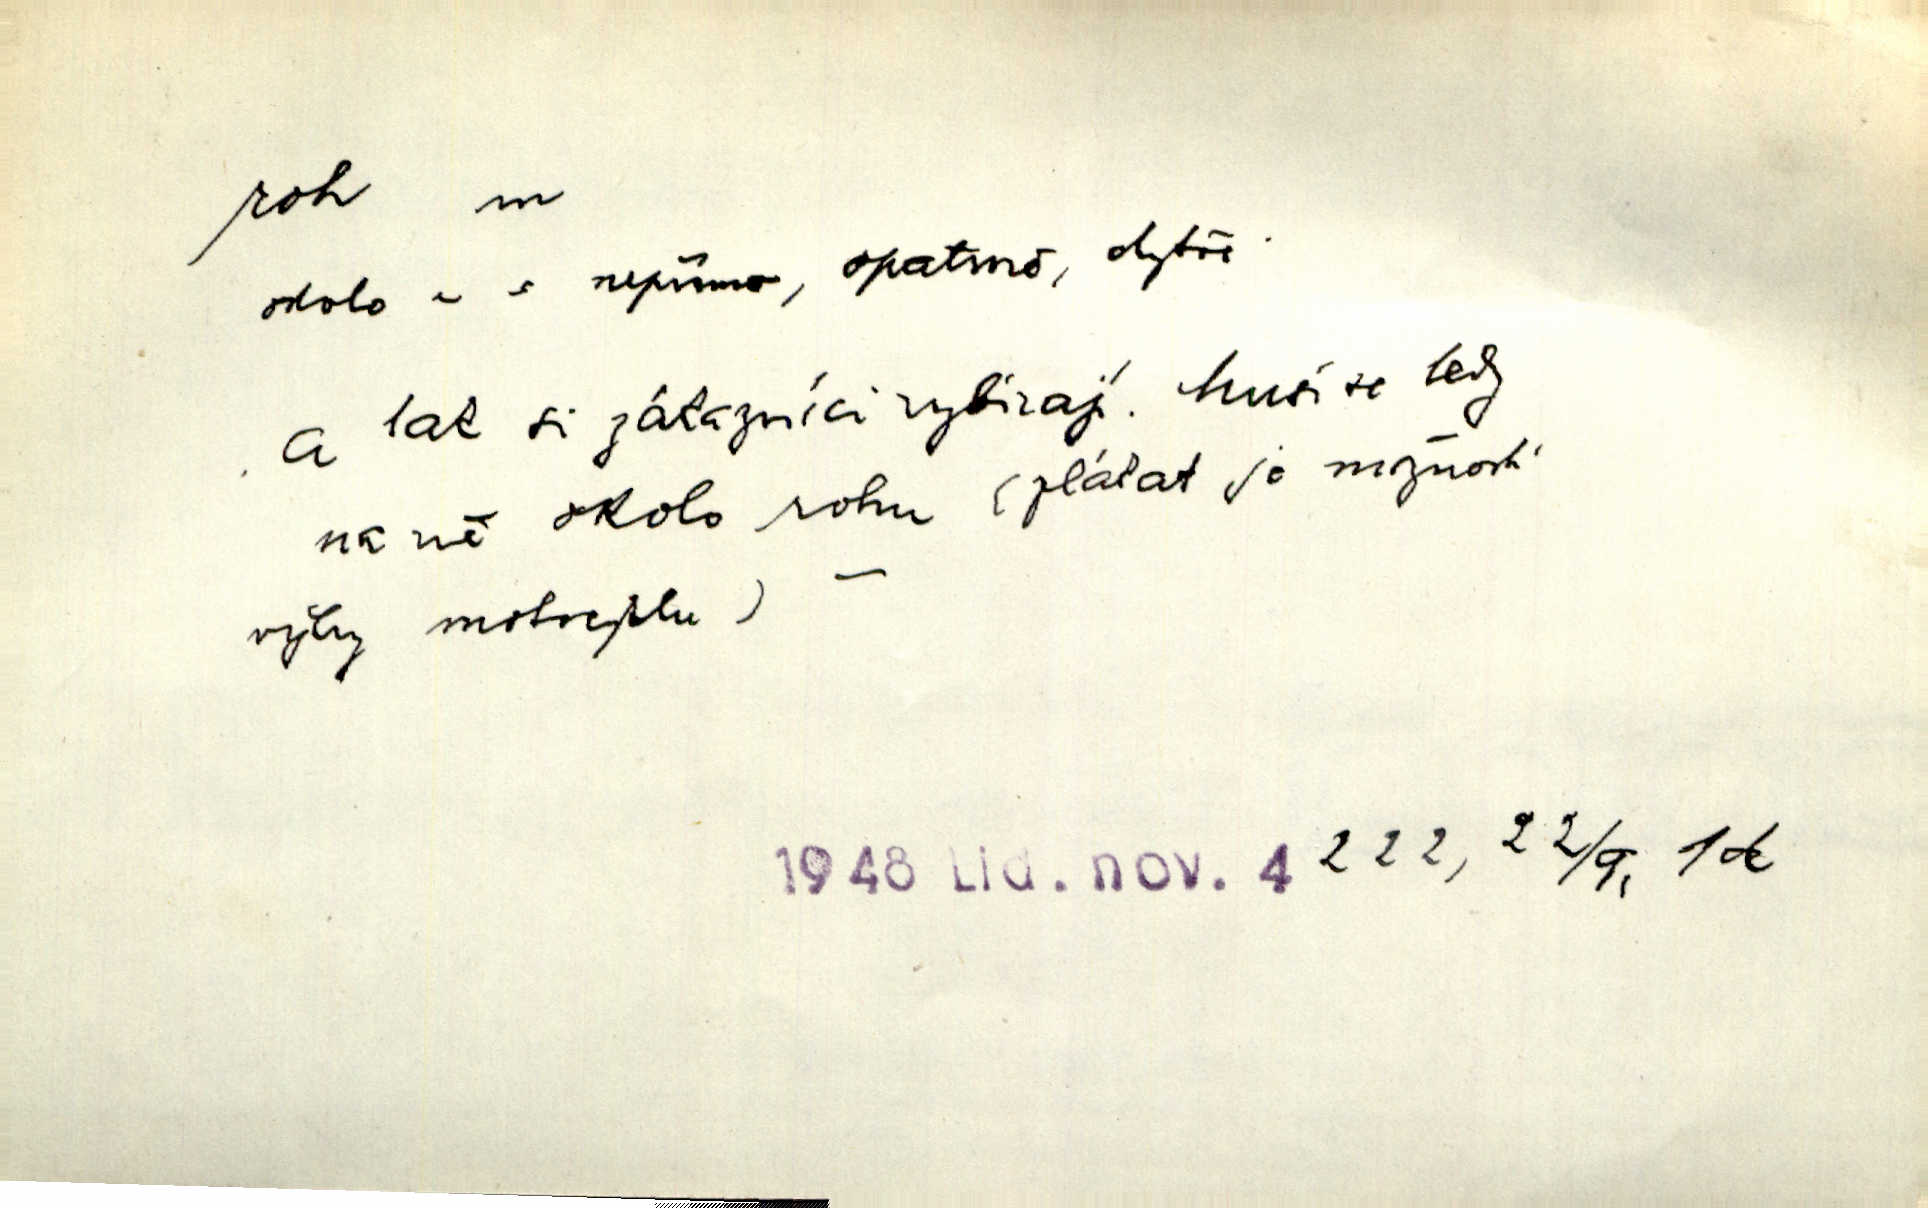 roh m
okolo r-u nepřímo, opatrně, chytře
A tak si zákazníci vybírají. Musí se tedy
na ně okolo rohu (zlákat je možností
výhry motocyklu) –
1948 Lid. nov. 4 222, 22/9,